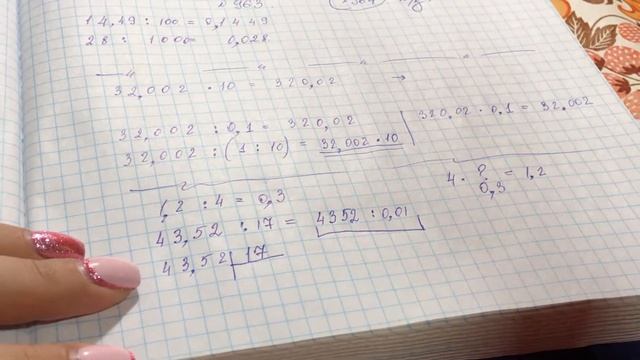 № 963.
14,49 : 100 = 0,1449
28 : 1000 = 0,028
32,002 · 10 = 320,02 →
32,002 : 0,1 = 320,02
32,002 : (1 : 10) = 32,002 · 10
320,02 · 0,1 = 32,002
1,2 : 4 = 0,3
4 · ? = 1,2
0,3
43,52 : 17 = 4352 : 0,01
43,52 17